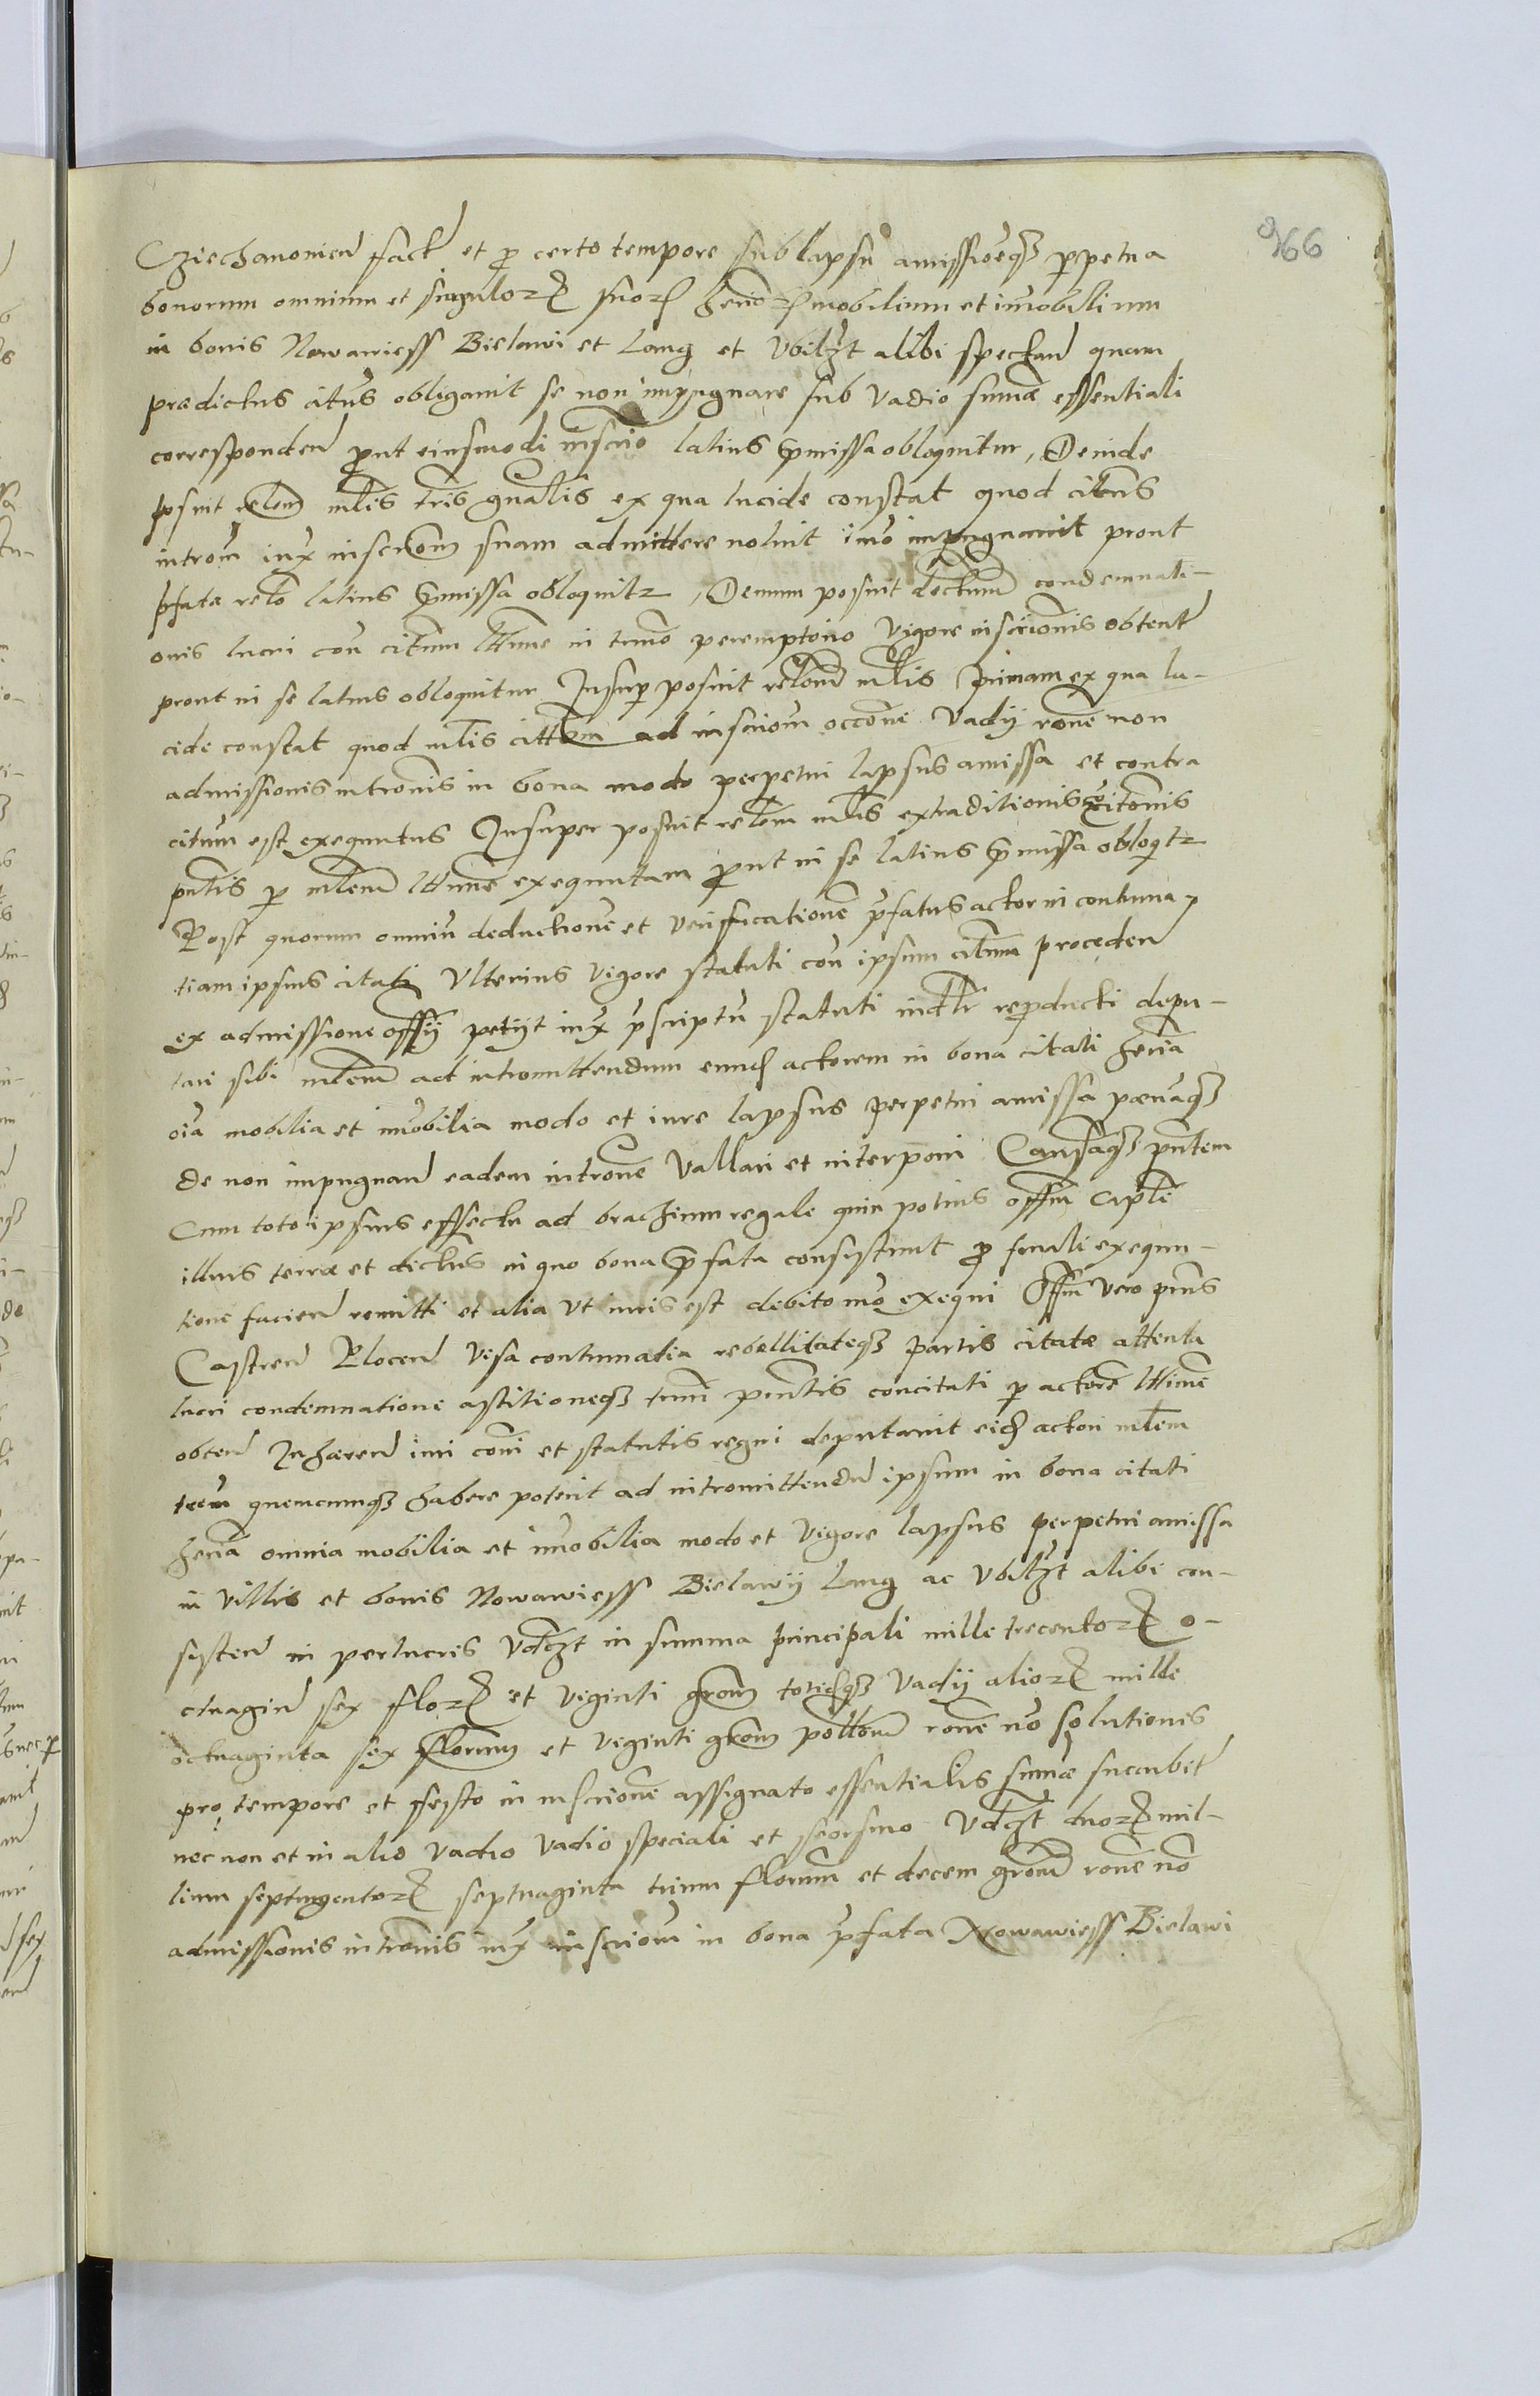 966
Cziechanonien fact et p certo tempore sub lapsu amissioeqȝ ppetua
bonorum omnium et singuloꝝ suoꝝ heriorꝝ mobilium et imobilium
in bonis Nowawiess Bielawi et Lang et Vbilȝt alibi spectand quam
prædictus citus obligauit se non impugnare sub Vadio sumæ essentiali
corresponden put eiusmodi inscrio latius pmissa obloquitur, Deinde
psuit relem mlis tris gnalis ex qua lucide constat quod citus
introm iux inscriom suam admittere noluit imo impugnauit prout
pfata relo latius pmissa obloquitꝛ, Demum posuit dectum condemnati-
onis lucri con citum lttime in tmo peremptorio Vigore inscrionis obtent
prout in se latius obloquitur Insup posuit relom mlis primam ex qua lu-
cide constat quod mlis cittem ad inscriom occone Vadij rone non
admissionis intronis in bona modo perpetui lapsus amissa et contra
citum est exequutus Insuper posuit relom mlis extraditionis citonis
pntis p mlem lttime exequutam put in se latius pmissa obloqtꝛ
Post quorum omniu deductione et verificatione pfatus actor in contuma
tiam ipsius citati Vlterius vigore statuti con ipsum citum proceden
ex admissione offij petijt iux pscriptu statuti indlt reproducti depu-
tari sibi mlem ad intromittendum eund actorem in bona citati heria
oia mobilia et imobilia modo et iure lapsus perpetui amissa pænaqȝ
de non impugnand eadem introne Vallari et interponi Causaqȝ pntem
Cum toto ipsius effectu ad brachium regale quin potius offm Caple
illius terræ et dictus in quo bona pfata consistunt p finali exequu-
tione facien remitti et alia vt iuris est debito mo exequi Offm vero pns
Castren Plocen Visa contumatia rebellitateqȝ partis citatæ attenta
lucri condemnatione astitioneqȝ tmi pntis concitati p actore lttime
obten Inhæren iuri coni et statutis regni deputauit eid actori mlem
tem quemcunqȝ habere poterit ad intromittendu ipsum in bona citati
heria omnia mobilia et imobilia modo et vigore lapsus perpetui amissa
in Villis et bonis Nowawiess Bielawij Lang ac Vbilȝt alibi con-
sisten in perlucris Vdlȝt in summa principali mille trecentoꝝ o-
ctuagin sex floꝝ et viginti grom totidqȝ Vadij alioꝝ mille
octuaginta sex florum et viginti grom polloum rone no solutionis
pro tempore et festo in inscrione assignato essentialis sumæ succubit
nec non et in alio vadio vadio speciali et seorsiuo Vdlȝt duoꝝ mil-
lium septingentoꝝ septuaginta trium florum et decem grom rone no
admissionis intronis iux inscriom in bona pfata Nowawiess Bielawi